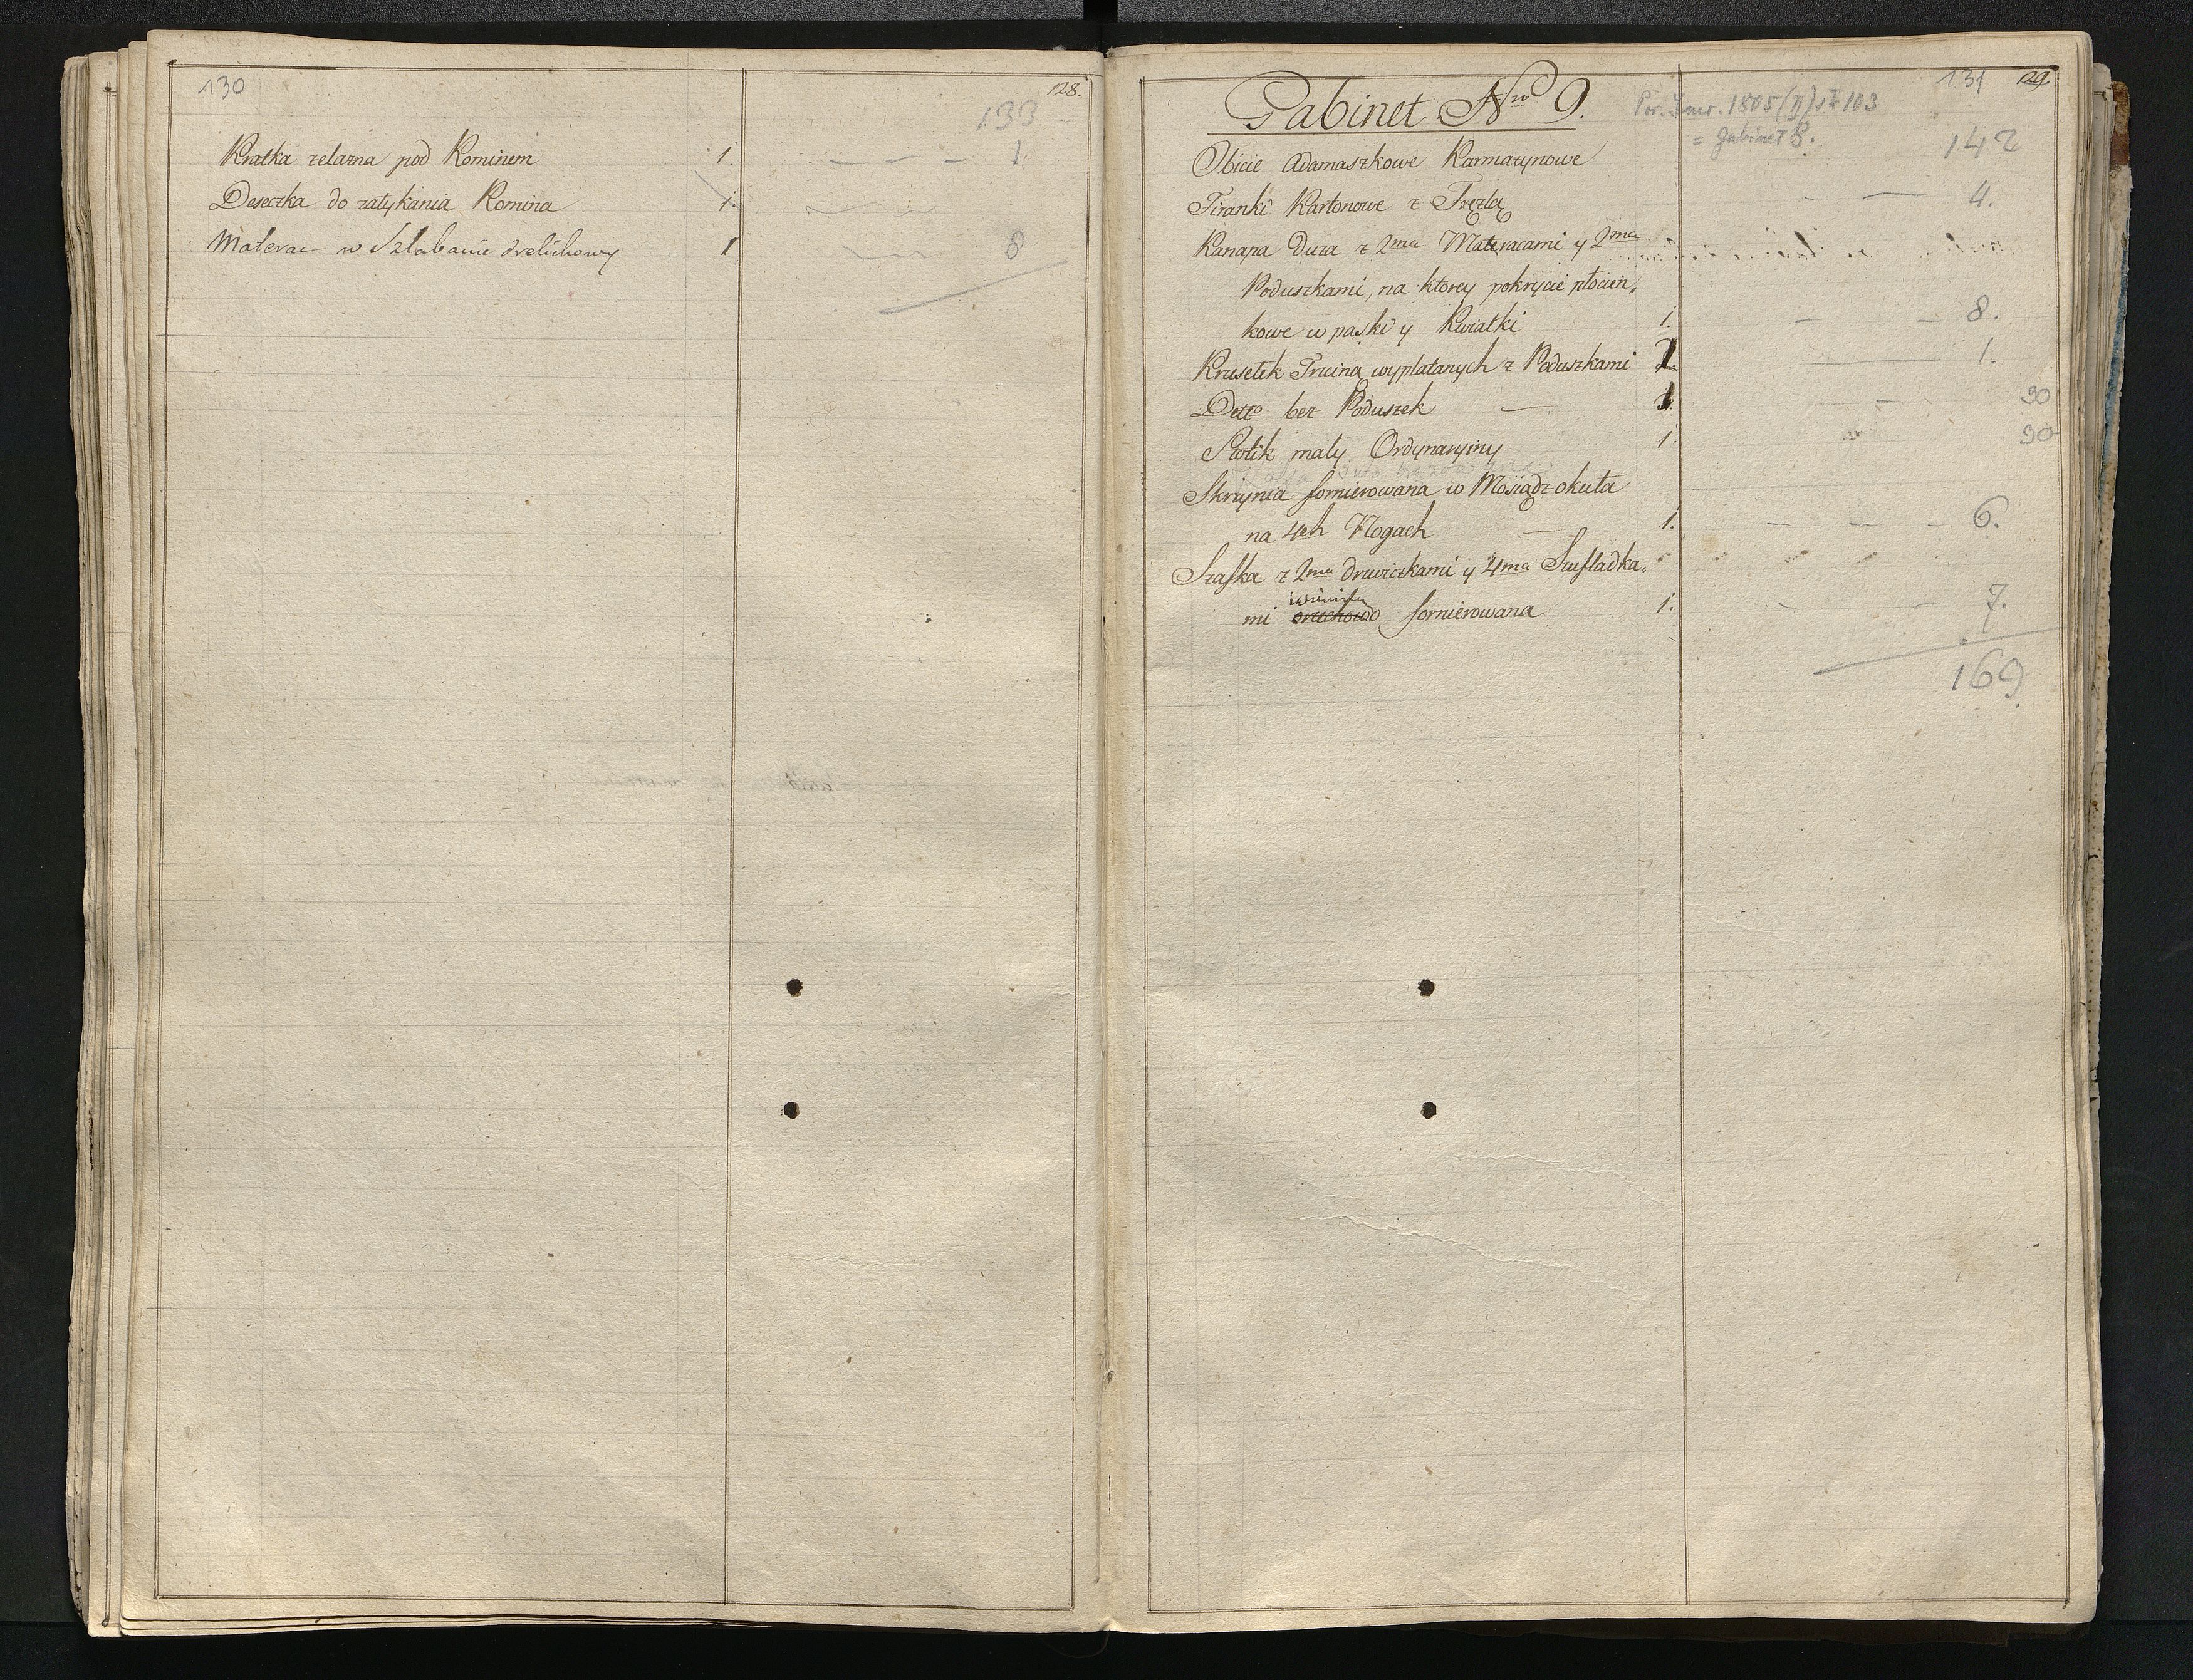 130
128.
133
Kratka zelazna pod Kominem 1. — — — 1.
Deseczka do zatykania Komina 1.
Materac w Szlabanie drelichowy 1 8
131 129.
Gabinet Nro 9.
Por. Inw. 1805 (II) st 103
= Gabinet 8.
142
Obicie Adamaszkowe Karmazynowe
Firanki Kartonowe z Fręzlą — 4.
Kanapa Duza z 2ma Materacami y 2ma
Poduszkami, na ktorey pokrycie płocien,
kowe w paski y Kwiatki 1. — — 8.
Krzesełek Trzciną wyplatanych z Poduszkami 1. — 1.
Detto bez Poduszek — 1. — 30
Stolik mały Ordynaryiny 1. 30
Skrzynia fornierowana w Mosiądz okuta
na 4ch Nogach — 1. — — — 6.
Szafka z 2ma drzwiczkami y 4ma Szufladka,
mi orzechowo fornierowana 1. — — 7.
169